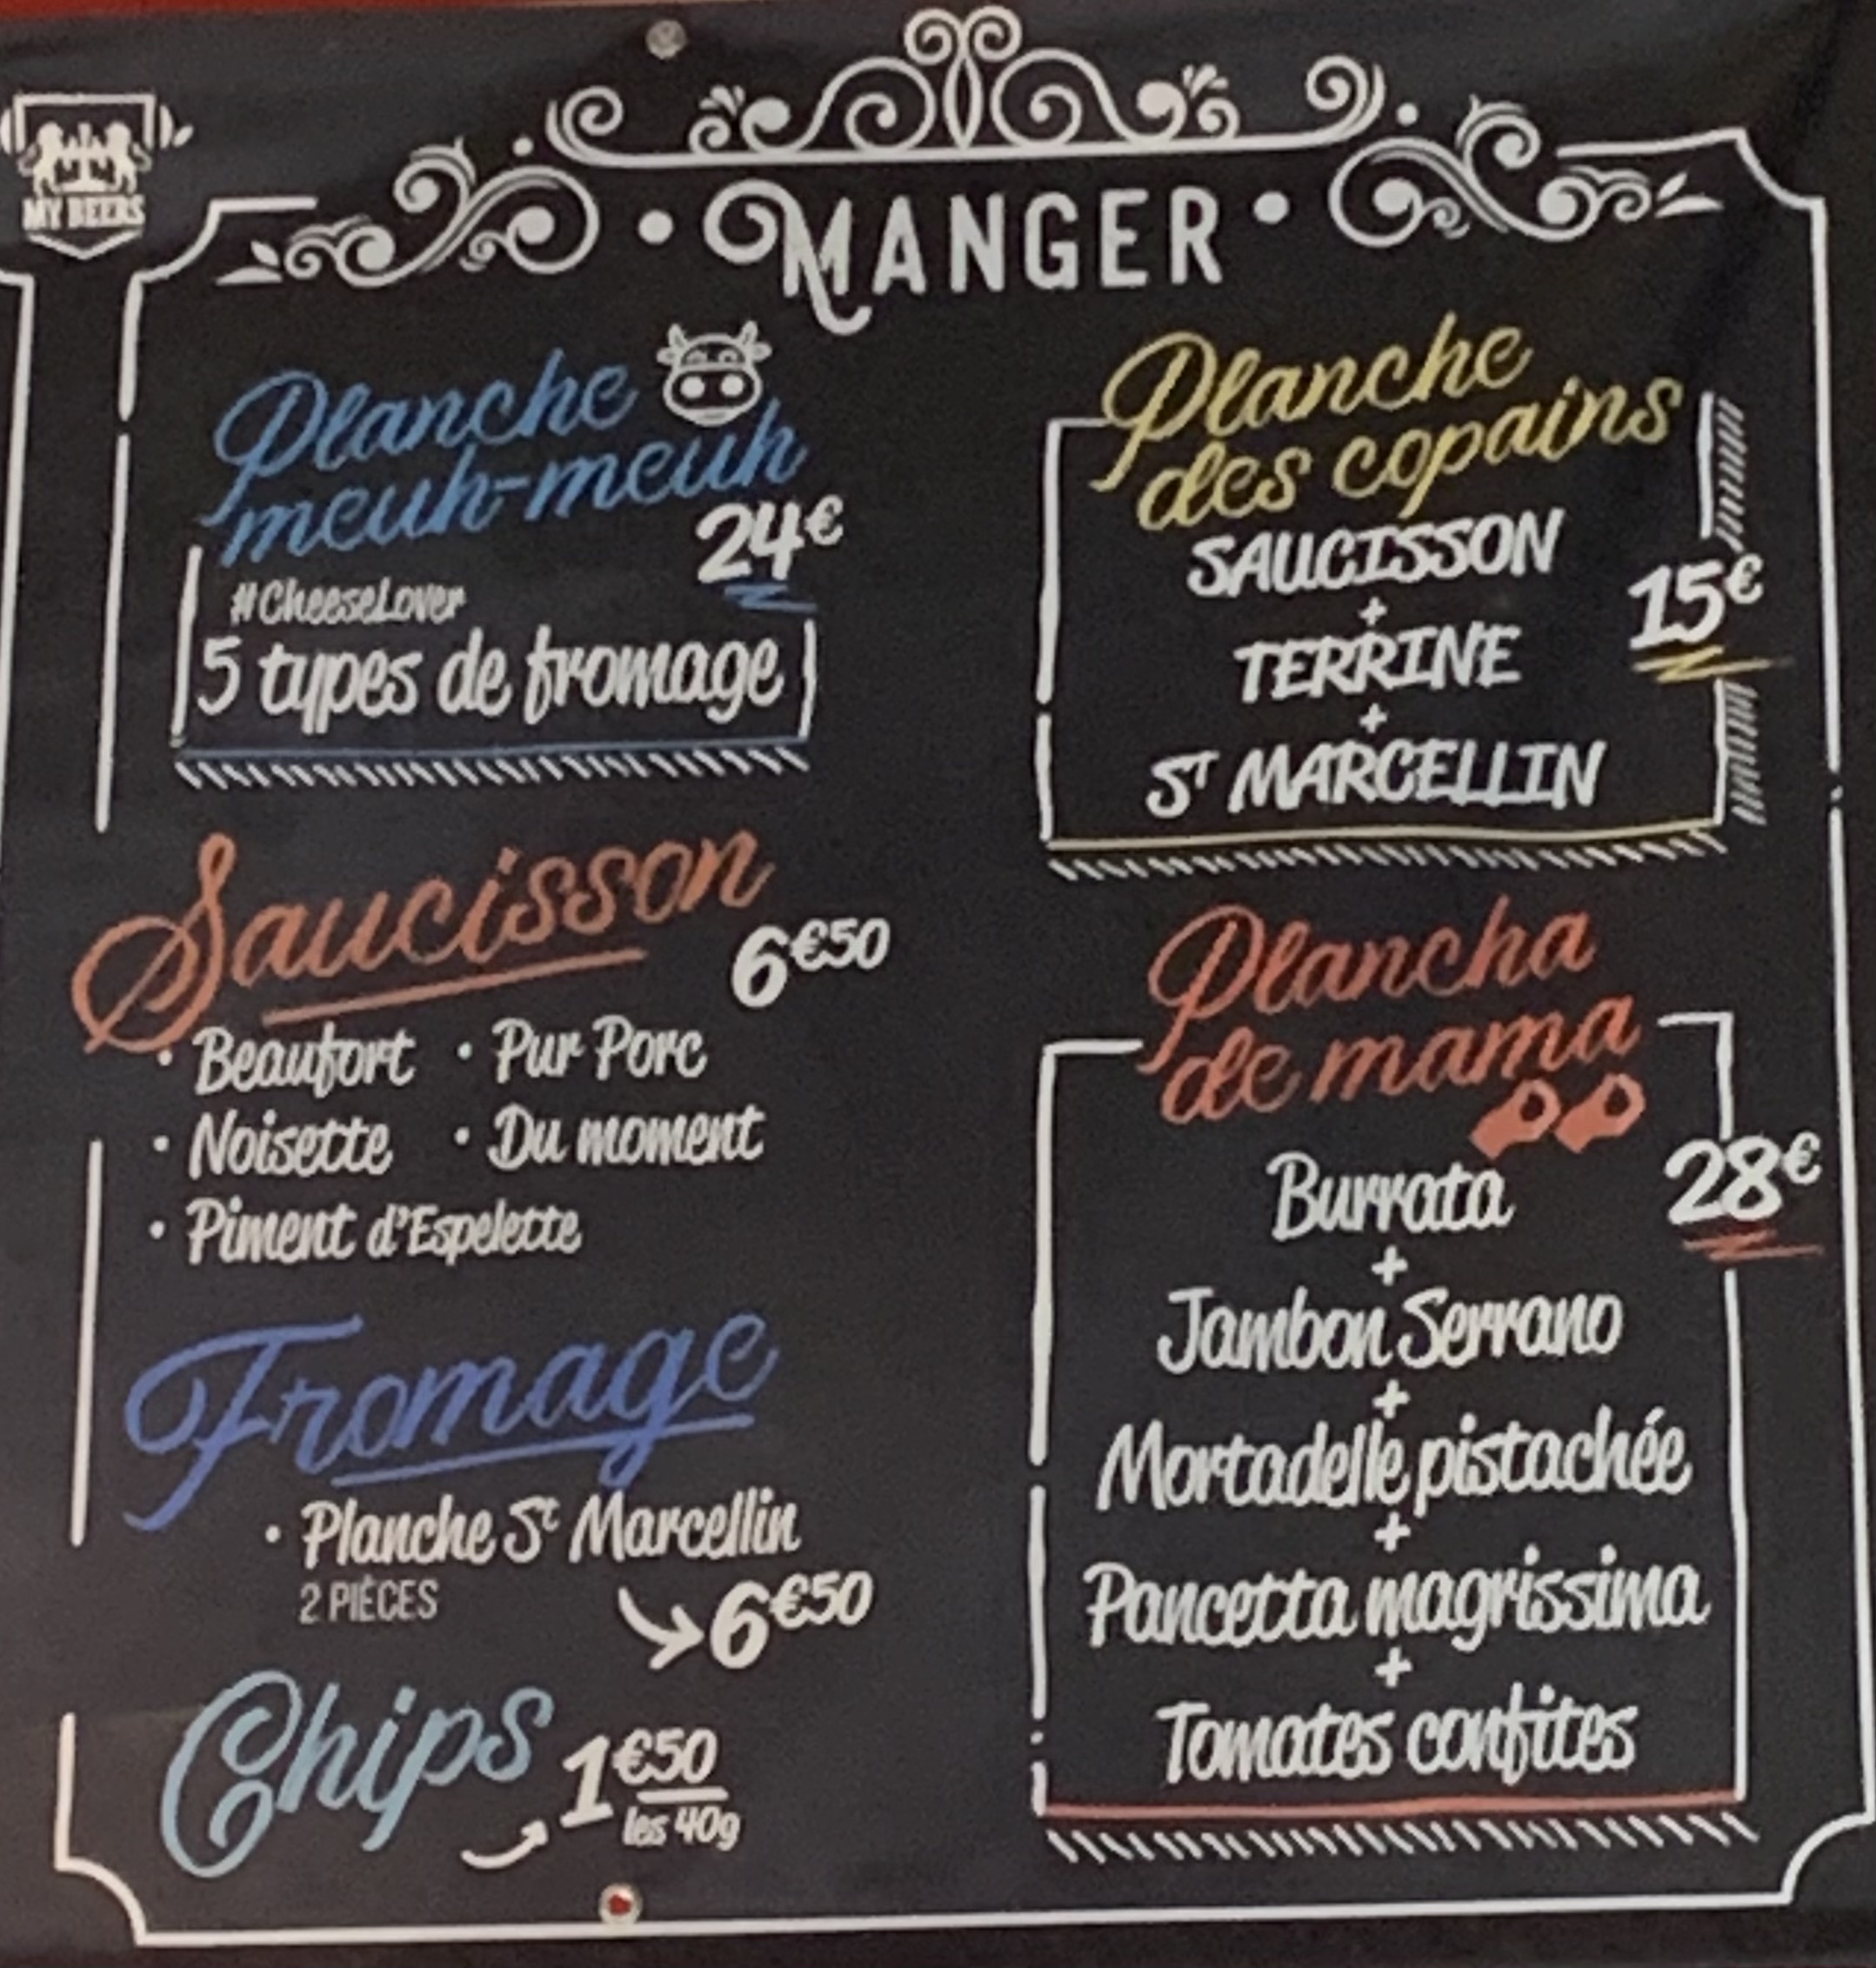 MY BEERS
MANGER
Planche
meuh-meuh
24€
#CheeseLover
5 types de fromage
Saucisson
6€50
• Beaufort • Pur Porc
• Noisette • Du moment
• Piment d'Espelette
Fromage
• Planche St Marcellin
2 PIÈCES
6€50
Chips
1€50
les 40g
Planche
des copains
SAUCISSON
+
TERRINE
15€
+
ST MARCELLIN
Plancha
de mama
28€
Burrata
+
Jambon Serrano
+
Mortadelle pistachée
+
Pancetta magrissima
+
Tomates confites